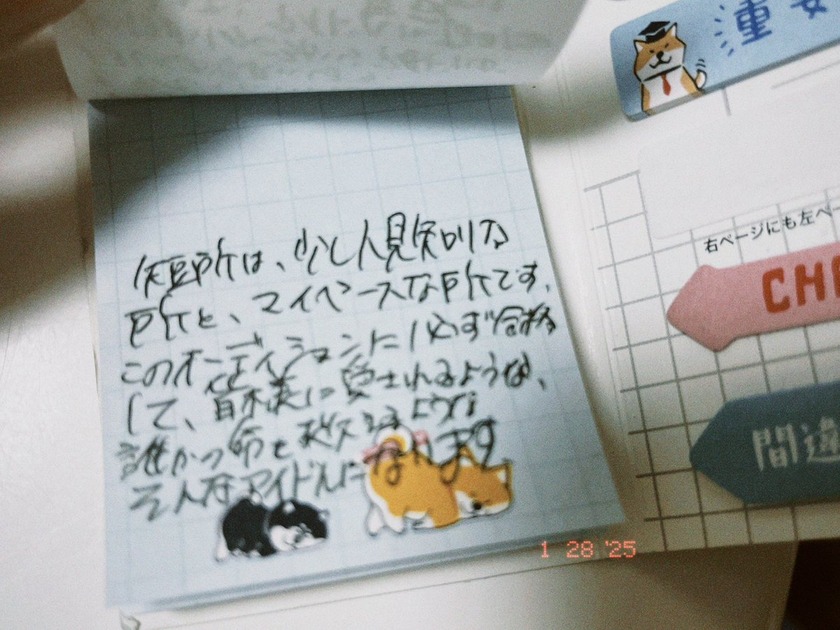 短所は、少し人見知りな
所と、マイペースな所です。
このオーディションに必ず合格
して、日本表に愛されるような、
誰かの命を救えるような
そんなアイドルになります
重要
右ページにも左ペー
CHE
間違
1 28 '25